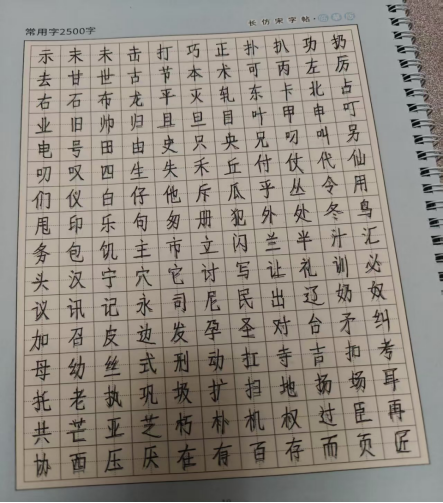 常用字2500字
长仿宋字帖
示末未击打巧正扑扒功扔
去甘世古节本术可丙左厉
右石布龙平灭轧东卡北占
业旧帅归且旦目叶甲申叮
电号田由史只央兄叼叫另
叨叹四生失禾丘付仗代仙
们仪白仔他斥瓜乎丛令用
甩印乐句匆册犯外处冬鸟
务包饥主市立闪兰半汁汇
头汉宁穴它讨写让礼训必
议讯记永司尼民出辽奶奴
加召皮边发孕圣对台矛纠
母幼丝式刑动扛寺吉扣考
托老执巩圾扩扫地扬场耳
共芒亚芝朽朴机权过臣再
协西压厌在有百存而页匠